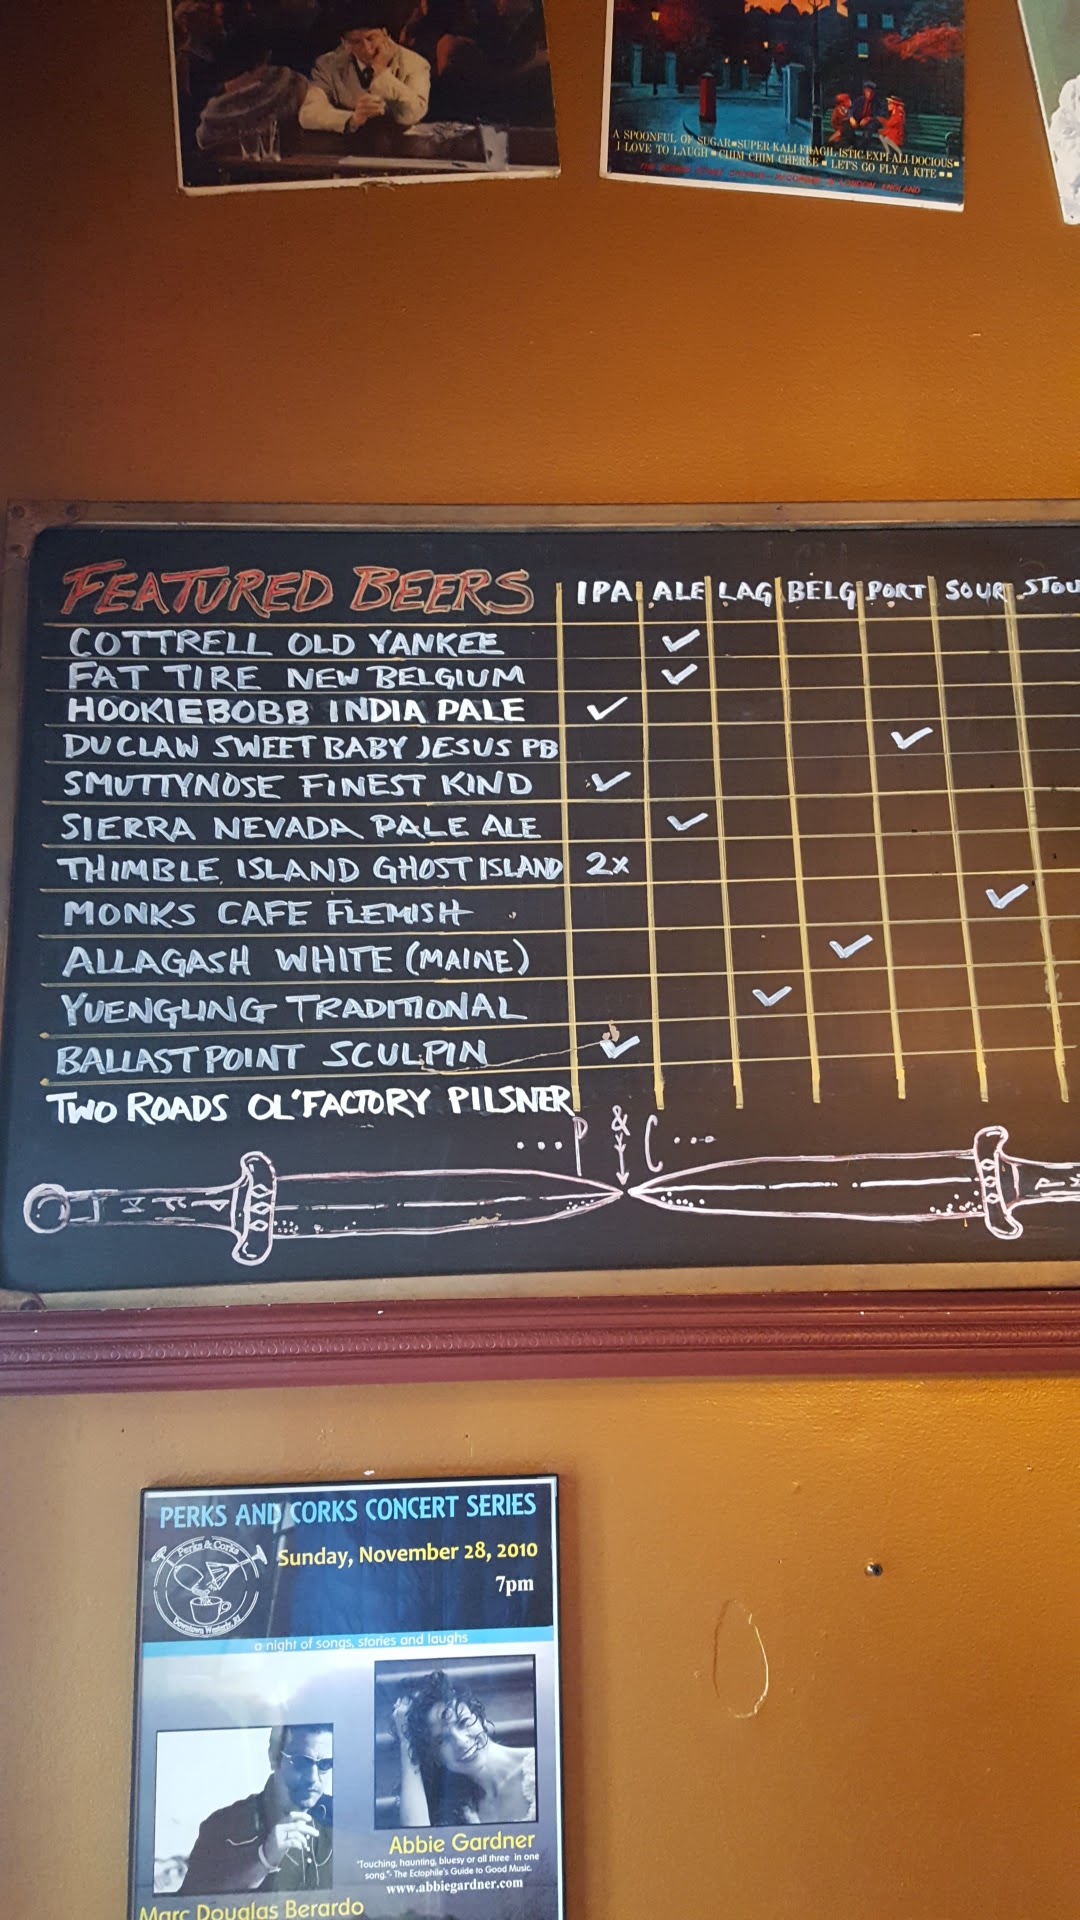 A SPOONFUL OF SUGAR▪SUPER·KALI·FRAGIL·ISTIC·EXPI·ALI·DOCIOUS▪
I LOVE TO LAUGH ▪ CHIM CHIM CHEREE ▪ LET'S GO FLY A KITE ▪▪
FEATURED BEERS IPA ALE LAG BELG PORT SOUR STOU
COTTRELL OLD YANKEE ✓
FAT TIRE NEW BELGIUM ✓
HOOKIEBOBB INDIA PALE ✓
DUCLAW SWEET BABY JESUS PB ✓
SMUTTYNOSE FINEST KIND ✓
SIERRA NEVADA PALE ALE ✓
THIMBLE ISLAND GHOST ISLAND 2x
MONKS CAFE FLEMISH ✓
ALLAGASH WHITE (MAINE) ✓
YUENGLING TRADITIONAL ✓
BALLAST POINT SCULPIN ✓
TWO ROADS OL'FACTORY PILSNER
...P & C...
PERKS AND CORKS CONCERT SERIES
Perks & Corks
Downtown Westerly, RI
Sunday, November 28, 2010
7pm
a night of songs, stories and laughs
Abbie Gardner
"Touching, haunting, bluesy or all three in one
song."- The Ectophile's Guide to Good Music.
www.abbiegardner.com
Marc Douglas Berardo